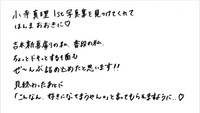 小寺真理 1st写真集を見つけてくれて
ほんまおおきに♡
吉本新喜劇の私、普段の私、
ちょっとドキっとする1面も
ぜ〜んぶ詰め込めたと思います!!
見終わったあとに
「こんなん、好きになってまうやん♡」と言ってもらえますように…♡